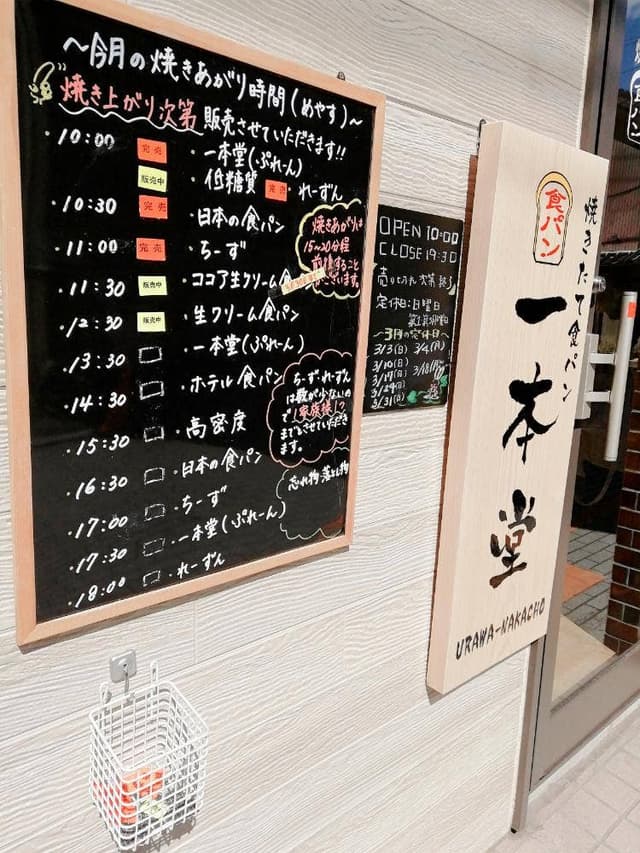 〜今月の焼きあがり時間(めやす)〜
焼き上がり次第 販売させていただきます!!
・10:00 完売 ・一本堂(ぷれーん)
販売中 ・低糖質 完売 ・れーずん
・10:30 完売 ・日本の食パン
・11:00 完売 ・ちーず
・11:30 販売中 ・ココア生クリーム食
・12:30 販売中 ・生クリーム食パン
・13:30 ・一本堂(ぷれーん)
・14:30 ・ホテル食パン
・15:30 ・高密度
・16:30 ・日本の食パン
・17:00 ・ちーず
・17:30 ・一本堂(ぷれーん)
・18:00 ・れーずん
焼きあがりは
15〜20分程
前後すること
がございます。
ちーず・れーずん
は数が少ないの
で1家族様1つ
までとさせていただき
ます。
忘れ物 落とし物
OPEN 10:00
CLOSE 19:30
売り切れ次第終了
定休日:日曜日
〜3月の定休日〜
3/3(日) 3/4(月)
3/10(日)
3/17(日) 3/18(月)
3/24(日)
3/31(日)
食パン
焼きたて食パン
一本堂
URAWA-NAKACHO